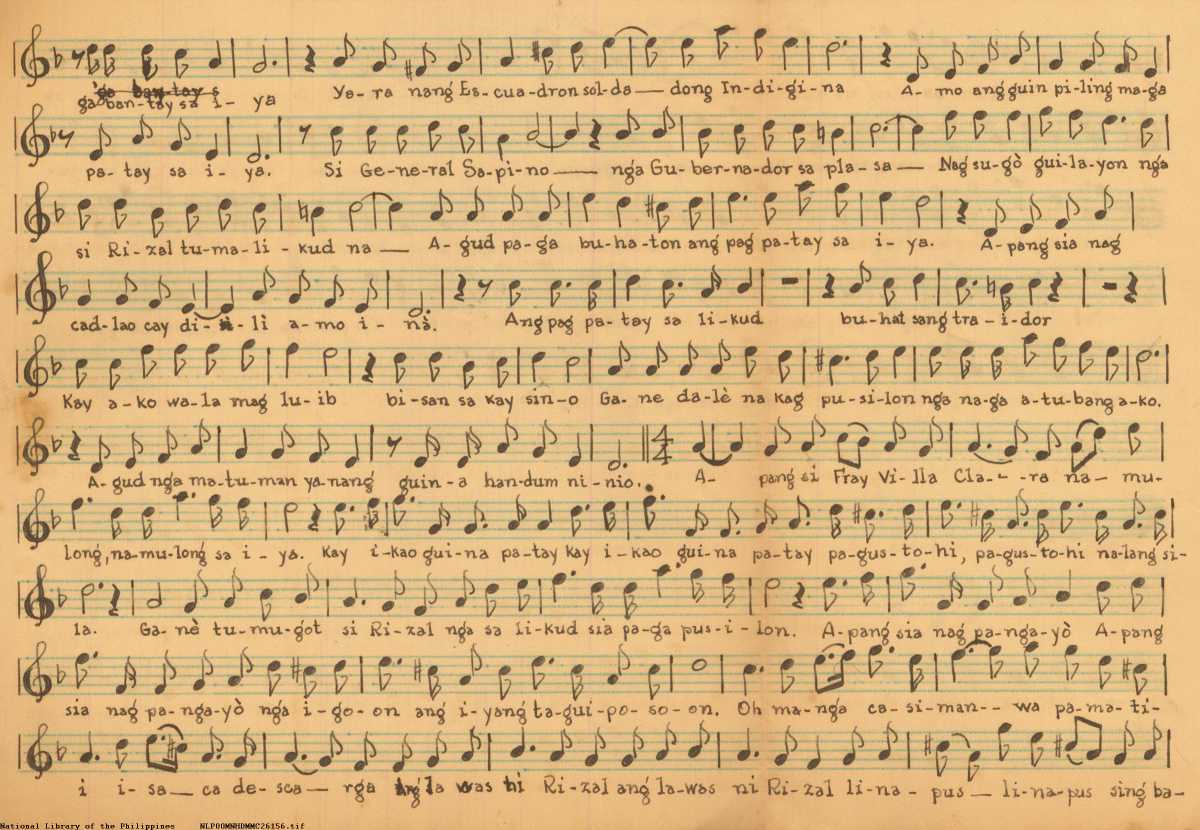 ga ban-tay sa i - ya Ya-ra nang Es-cua-dron sol-da — dong In-di-gi-na A-mo ang guin pi-ling ma-ga
pa-tay sa i - ya. Si Ge-ne-ral Sa-pi-no — nga Gu-ber-na-dor sa pla-sa — Nag su-gò gui-la-yon nga
si Ri-zal tu-ma-li-kud na — A-gud pa-ga bu-ha-ton ang pag pa-tay sa i-ya. A-pang sia nag
cad-lao cay di - li a-mo i-nà. Ang pag pa-tay sa li-kud bu-hat sang tra-i-dor
Kay a-ko wa-la mag lu-ib bi-san sa kay sin-o Ga-ne da-lè na kag pu-si-lon nga na-ga a-tu-bang a-ko.
A-gud nga ma-tu-man ya-nang guin-a han-dum ni-nio. 4 4 A- pang si Fray Vi-lla Cla---ra na-mu-
long, na-mu-long sa i-ya. Kay i-kao gui-na pa-tay kay i-kao gui-na pa-tay pa-gus-to-hi, pa-gus-to-hi na-lang si-
la. Ga-nè tu-mu-got si Ri-zal nga sa li-kud sia pa-ga pus-i-lon. A-pang sia nag pa-nga-yò A-pang
sia nag pa-nga-yò nga i-go-on ang i-yang ta-gui-po-so-on. Oh ma-nga ca-si-man-- wa pa-ma-ti-
i i-sa — ca de-sca — rga ang la was ni Ri-zal ang la-was ni Ri-zal li-na-pus — li-na-pus sing ba-
National Library of the Philippines NLP00MNHDMMC26156.tif